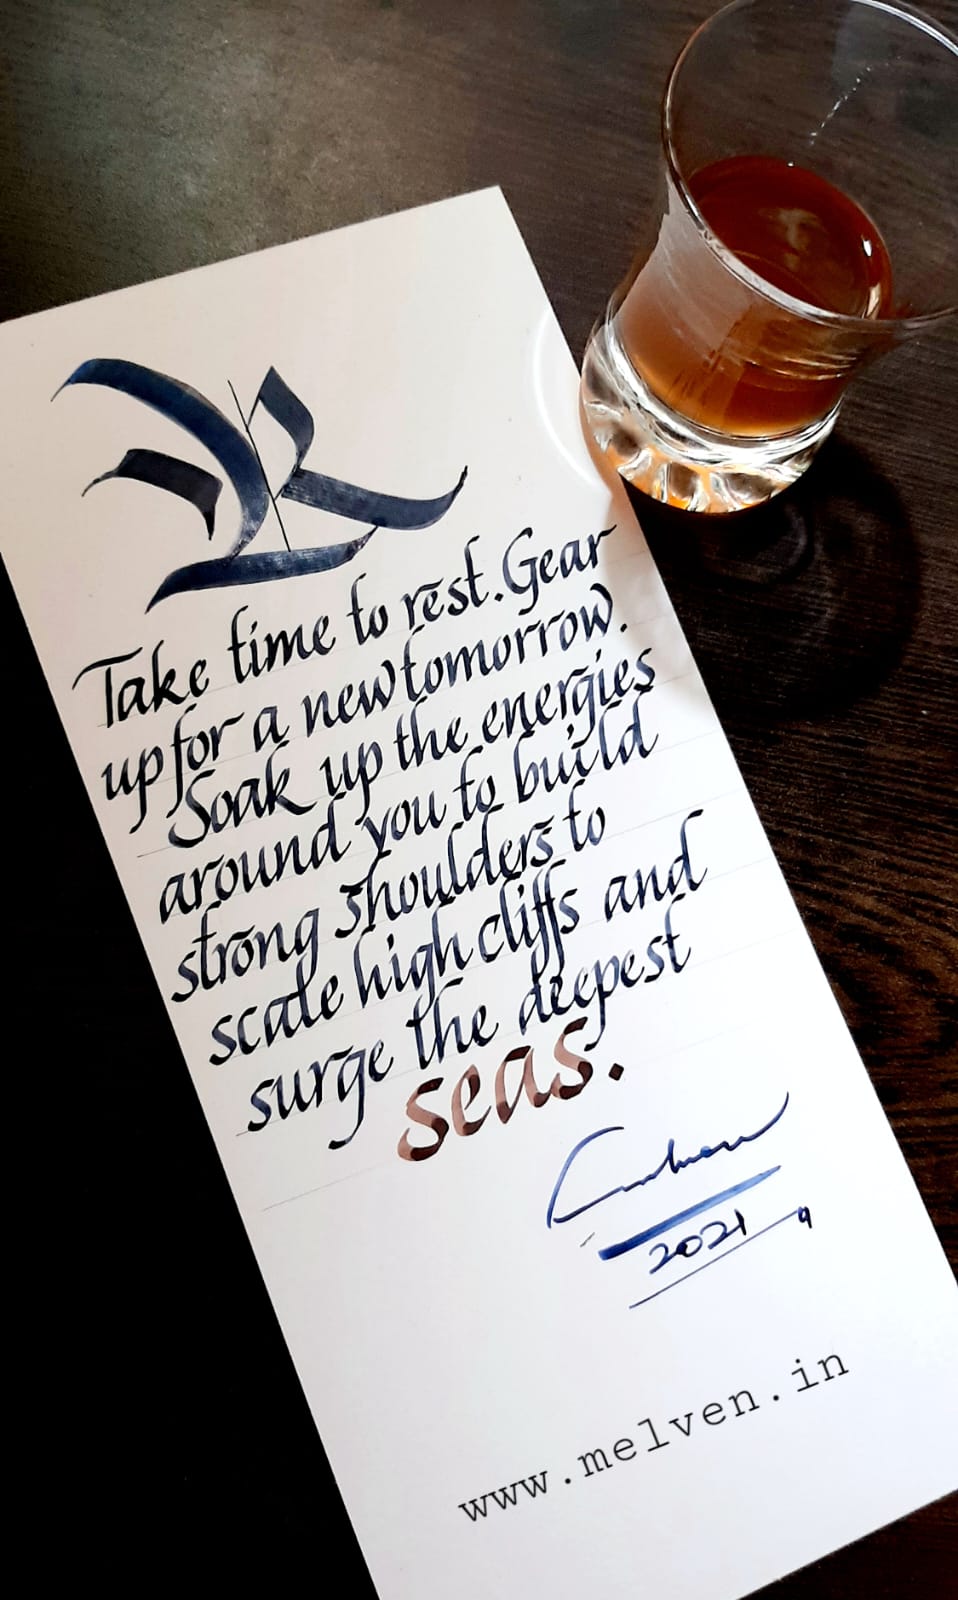 R
Take time to rest. Gear
up for a new tomorrow.
Soak up the energies
around you to build
strong shoulders to
scale high cliffs and
surge the deepest
seas.
2021
www.melven.in